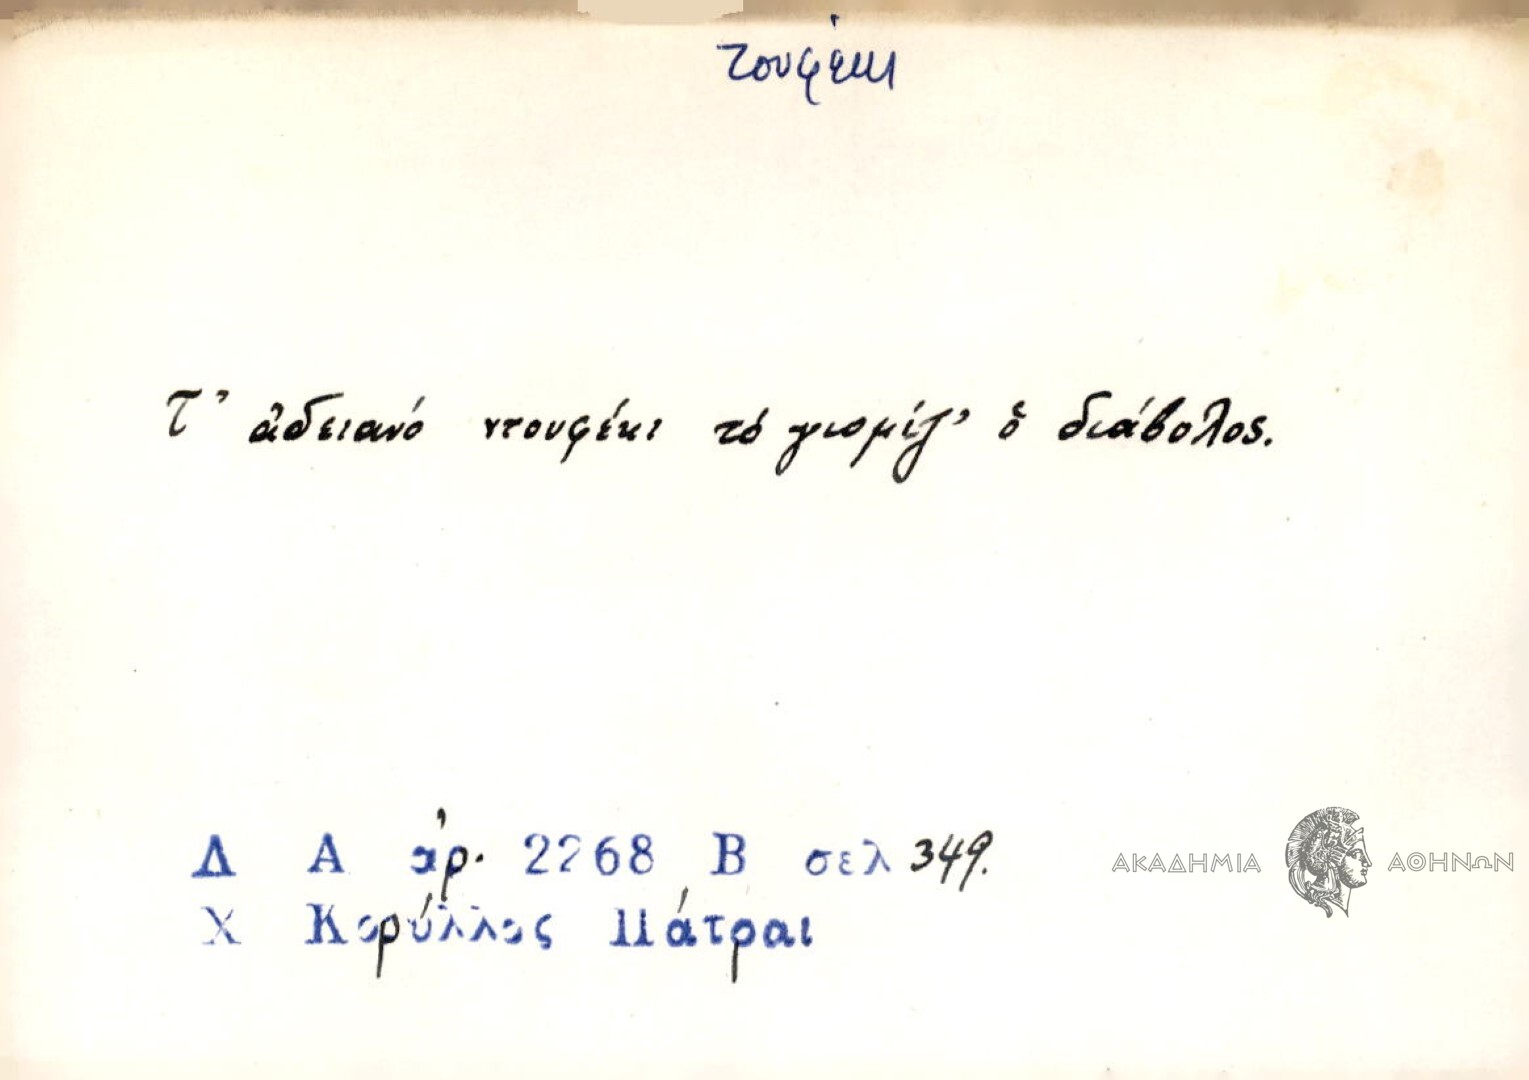 τουφέκι
Τ' ἀδειανό ντουφέκι τό γιομίζ' ὁ διάβολος.
Δ Α ἀρ. 2268 Β σελ 349.
Χ Κορύλλος Πάτραι
ΑΚΑΔΗΜΙΑ ΑΘΗΝΩΝ